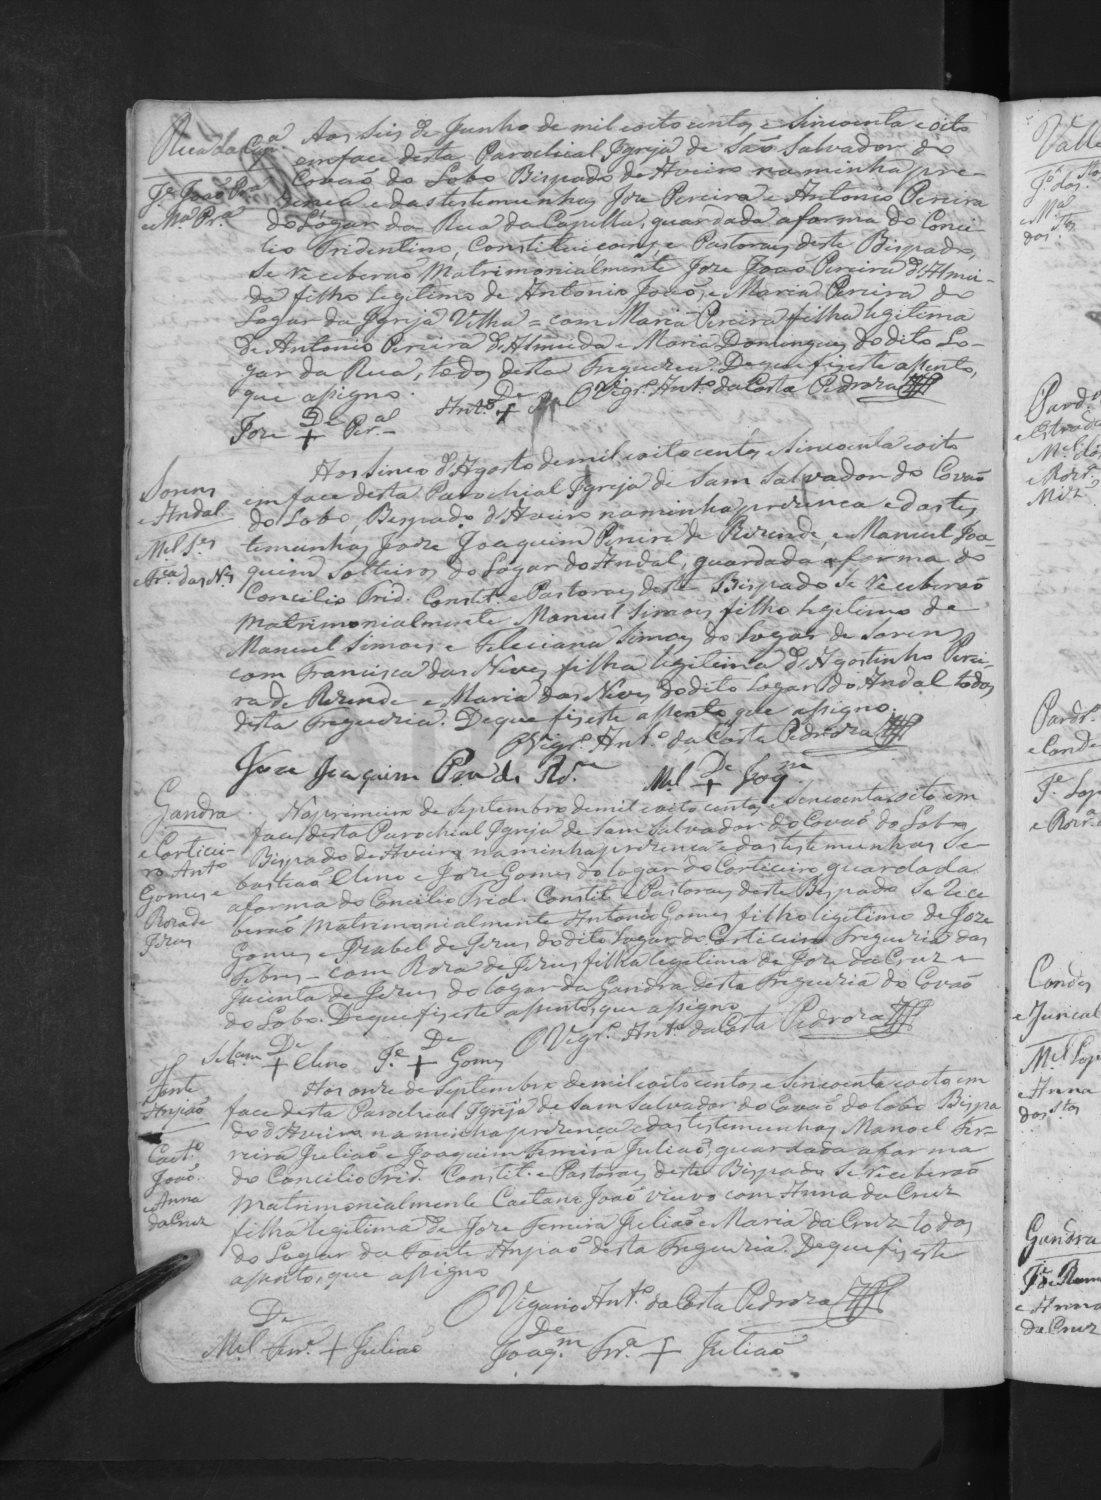 Rua da Cap.ª
J.e João Pr.ª
e M.ª Pr.ª
Aos seis de Junho de mil e oito centos e sincoenta e oito
em face desta Parochial Igreja de São Salvador do
Covaõ do Lobo Bispado de Aveiro na minha pre-
zença e das testemunhas Joze Pereira e Antonio Pereira
do Lógar da Rua da Capella, guardada a forma do Conci-
lio Tridentino, Constituicoens e Pastoraes deste Bispado,
se receberaõ Matrimonialmente Joze Joaõ Pereira d'Almei-
da filho legitimo de Antonio Joaõ, e Maria Pereira do
Logar da Igreja Velha = com Maria Pereira filha legitima
de Antonio Pereira d'Almeida e Maria Domingues do dito Lo-
gar da Rua, todos desta Freguezia. De que fiz este assento,
que assigno.
O Vigr.º Ant.º da Costa Pedroza
Ant.º De +
Joze De + Per.al
Sorens
e Andal
M.el S.es
e Fr.ca das N.es
Aos sinco d'Agosto de mil e oito centos e sincoenta e oito
em face desta Parochial Igreja de Sam Salvador do Covaõ
do Lobo, Bispado d'Aveiro na minha prezenca e das tes
temunhas Joze Joaquim Pereira de Rezende, e Manuel Joa-
quim Solteiros do Lógar do Andal, guardada a forma do
Concilio Trid. Constit. e Pastoraes deste Bispado se receberaõ
Matrimonialmente Manuel Simoes filho legitimo de
Manuel Simoes e Feleciana Simoes do Logar de Sorens
com Francisca das Neves filha legitima d'Agostinho Perei-
ra de Rezende e Maria das Neves do dito Logar do Andal todos
desta Freguezia. De que fiz este assento, que assigno.
O Vigr.º Ant.º da Costa Pedroza
Joze Joaquim Per.ª de Rd.e
M.el De + Joaq.m
Gandra
e Corticei-
ro Ant.º
Gomes e
Roza de
Jezus
No primeiro de Septembro de mil e oito centos e sincoenta e oito em
face desta Parochial Igreja de Sam Salvador do Covaõ do Lobo
Bispado de Aveiro na minha prezenca e das testemunhas Se-
bastiaõ Clino e Joze Gomes do logar do Corticeiro, guardada
a forma do Concilio Trid. Constit. e Pastoraes deste Bispado se rece
beraõ Matrimonialmente Antonio Gomes filho legitimo de Joze
Gomes e Izabel de Jezus do dito Lugar do Corticeiro Freguezia das
Febres = com Roza de Jezus filha legitima de Joze da Cruz e
Jacinta de Jezus do logar da Gandra, desta Freguezia do Covaõ
do Lobo. De que fiz este assento, que assigno
O Vigr.º Ant.º da Costa Pedroza
Sebam De + Clino J.e De + Gomes
Fonte
Anjiaõ
Caet.º
Joaõ
e Anna
da Cruz
Aos onze de Septembro de mil e oito centos e sincoenta e oito em
face desta Parochial Igreja de Sam Salvador do Covaõ do Lobo Bispa
do d'Aveiro na minha prezença e das testemunhas Manoel Fer-
reira Juliaõ e Joaquim Ferreira Juliaõ, guardada a forma
do Concilio Trid. Constit. e Pastoraes deste Bispado se receberaõ
Matrimonialmente Caetano Joaõ viuvo com Anna da Cruz
filha legitima de Joze Ferreira Juliaõ e Maria da Cruz todos
do Logar da Fonte Anjiaõ desta Freguezia. De que fiz este
assento, que assigno
O Vigario Ant.º da Costa Pedroza
M.el Ferr.ª De + Juliaõ
Joaq.m Frr.ª De + Juliaõ
Gandra
e Anna
da Cruz